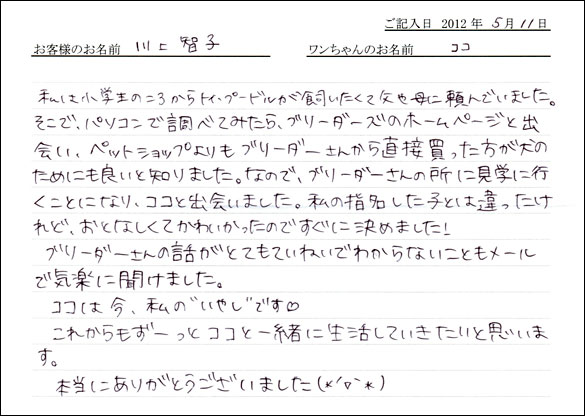 ご記入日 2012年5月11日
お客様のお名前 川上 智子 ワンちゃんのお名前 ココ
私は小学生のころからトイ・プードルが飼いたくて父や母に頼んでいました。
そこで、パソコンで調べてみたら、ブリーダーズのホームページと出
会い、ペットショップよりもブリーダーさんから直接買った方が犬の
ためにも良いと知りました。なので、ブリーダーさんの所に見学に行
くことになり、ココと出会いました。私の指名した子とは違ったけ
れど、おとなしくてかわいかったのですぐに決めました!
ブリーダーさんの話がとてもていねいでわからないこともメール
で気楽に聞けました。
ココは今、私の"いやし"です♡
これからもずーっとココと一緒に生活していきたいと思いま
す。
本当にありがとうございました(*'▽`*)